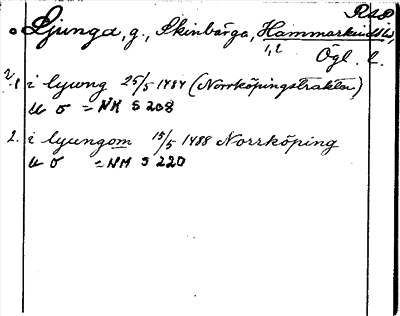 R48
Ljunga, g., Skinbärga, Hammarkinds hd,
1,2
Ögl. l.
1. i lyung 25/5 1484 (Norrköpingstrakten)
u o = NM S 208
2. i lyungom 15/5 1488 Norrköping
u o = NM S 220